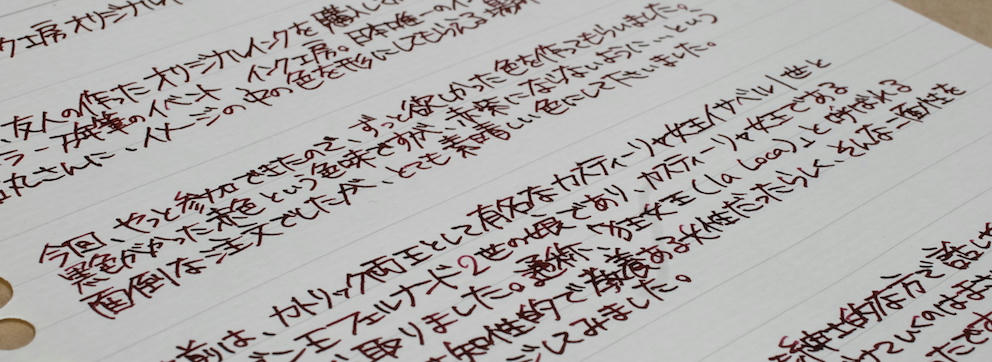 ク工房オリジナル
、友人の作ったオリジナルインクを購入し
ラー万年筆のイベント インク工房。日本で唯一のイ
さんに、イメージの中の色を形にしてもらえる
今回、やっと参加できたので、ずっと欲しかった色を作ってもらいました。
黒色がかった赤色という色味ですが、赤茶にならないように…という
面倒な注文でしたが、とても素晴しい色にして下さいました。
前は、カトリック両王として有名なカスティーリャ女王イサベル1世と
ン王フェルナンド2世の娘であり、カスティーリャ女王である
取りました。通称、狂女王(la Loca)」と呼ばれる
知性的で教養ある女性だったらしく、そんな一面性を
ジしてみました。
紳士的な方で話し